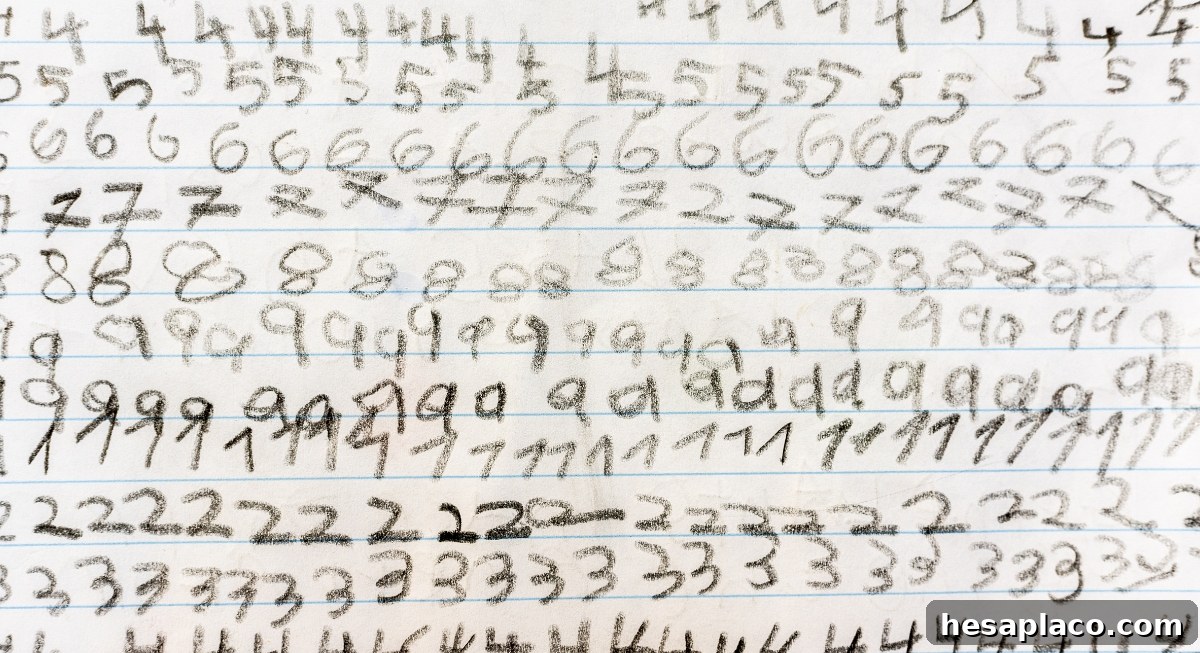 4 4 4 4 4 4 4 4 4 4 4 4 4 4 4 4 4 4 4
5 5 5 5 5 5 5 5 5 5 5 5 5 5 5 5 5 5 5 5
6 6 6 6 6 6 6 6 6 6 6 6 6 6 6 6 6 6 6 6
7 7 7 7 7 7 7 7 7 7 7 7 7 7 7 7 7
8 8 8 8 8 8 8 8 8 8 8 8 8 8 8 8 8 8 8
9 9 9 9 9 9 9 9 9 9 9 9 9 9 9 9 9 9 9 9 9 9 9
9 9 9 9 9 9 9 9 9 9 9 9 9 9 9 9 9 9 9 9 9
1 1 1 1 1 1 1 1 1 1 1 1 1 1 1 1 1 1 1 1 1 1
2 2 2 2 2 2 2 2 2 2 2 2 2 2 2 2 2 2 2 2
3 3 3 3 3 3 3 3 3 3 3 3 3 3 3 3 3 3 3 3 3 3 3
hesaplaco.com